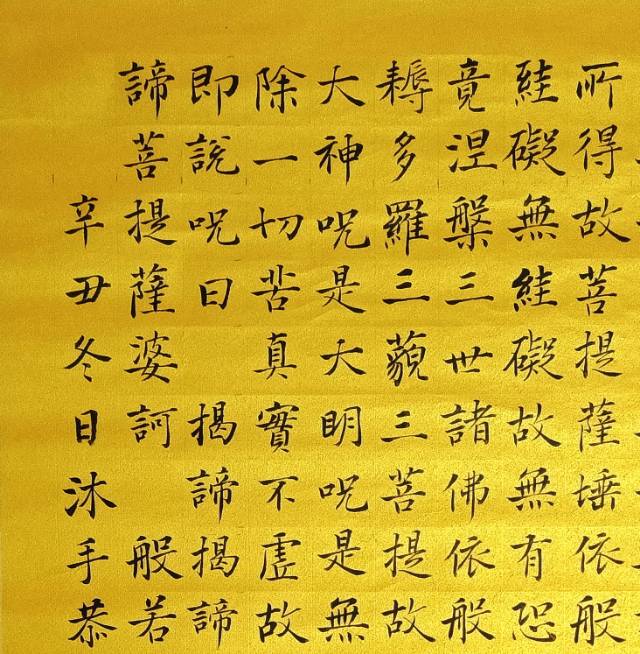 所得故菩提薩埵依般
絓礙無絓礙故無有恐
竟涅槃三世諸佛依般
耨多羅三藐三菩提故
大神呪是大明呪是無
除一切苦真實不虛故
即說呪曰 揭諦揭諦
諦菩提薩婆訶 般若
辛丑冬日沐手恭